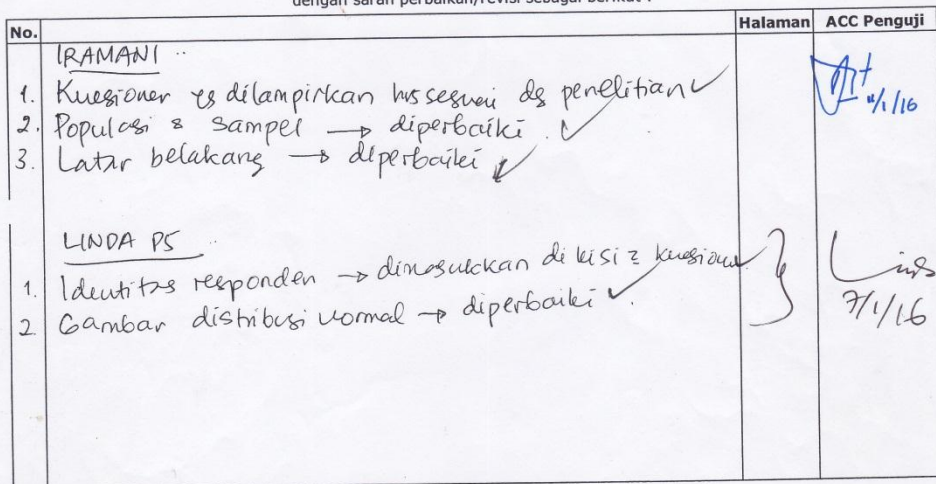 dengan saran perbaikan/revisi sebagai berikut :
No. Halaman ACC Penguji
IRAMANI
1. Kuesioner yg dilampirkan hrs sesuai dg penelitian
2. Populasi & Sampel → diperbaiki
3. Latar belakang → diperbaiki
11/1/16
LINDA PS
1. Identitas responden → dimasukkan di kisi2 kuesioner
2. Gambar distribusi normal → diperbaiki
7/1/16